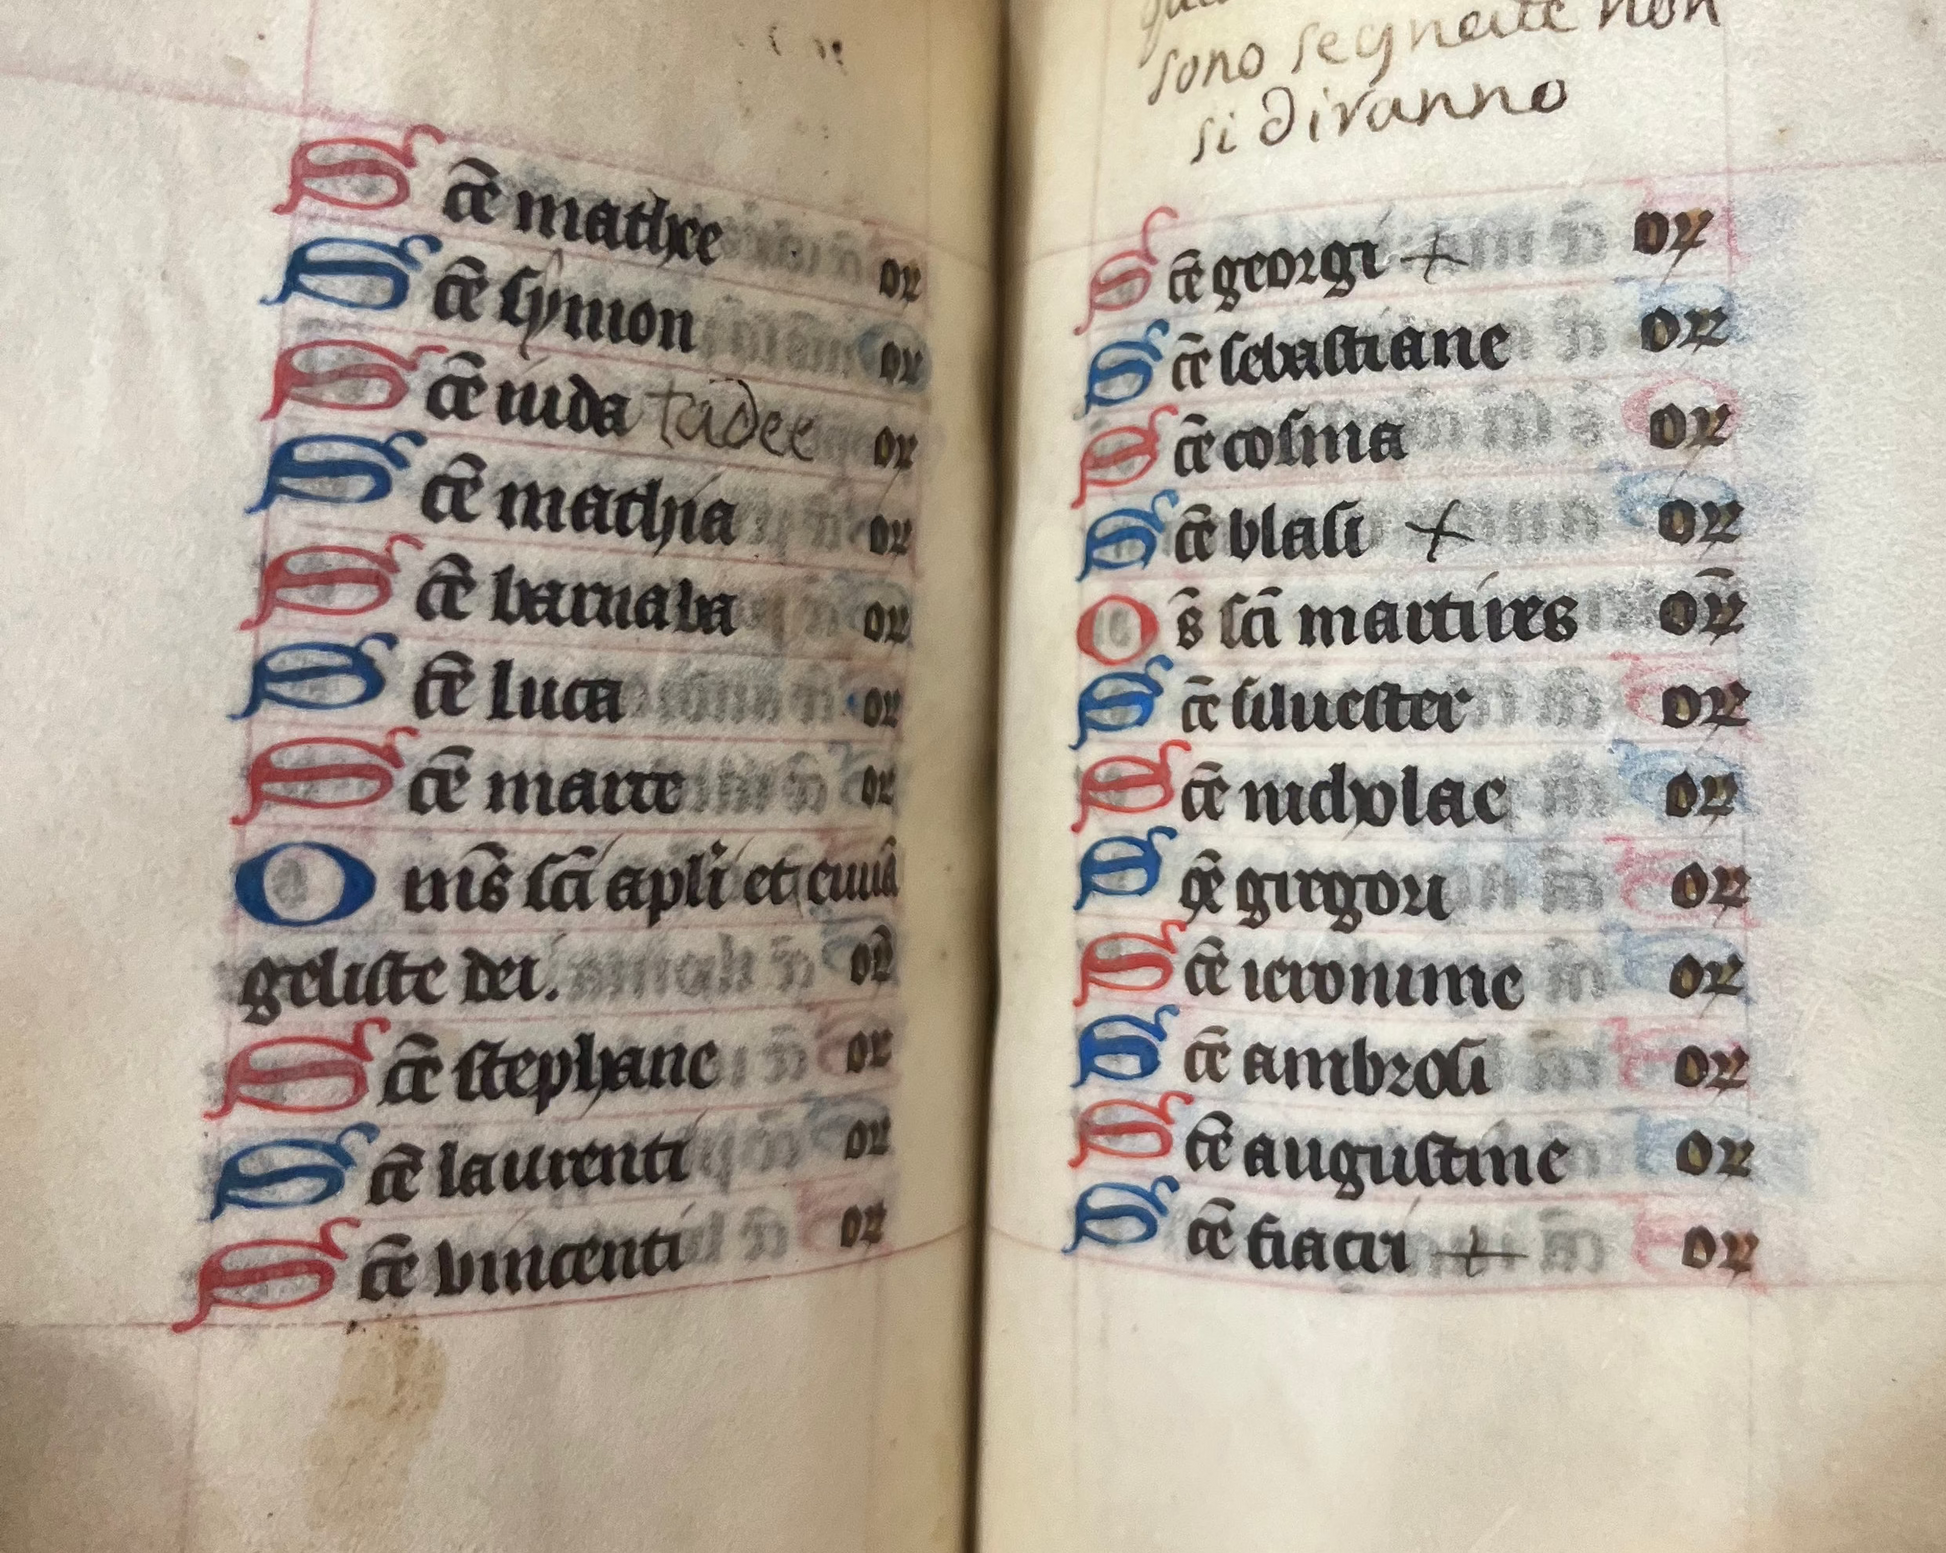 Sce mathee or
Sce symon or
Sce iuda tadee or
Sce mathia or
Sce barnaba or
Sce luca or
Sce marce or
Oms sci apli et euuā
geliste dei. or
Sce stephane or
Sce laurenti or
Sce vincenti or
sono segnate non
si diranno
Sce georgi + or
Sce sebastiane or
Sce cosma or
Sce blasi + or
Os sci martires or
Sce siluester or
Sce nicholae or
Sce gregori or
Sce ieronime or
Sce ambrosi or
Sce augustine or
Sce fiacri + or